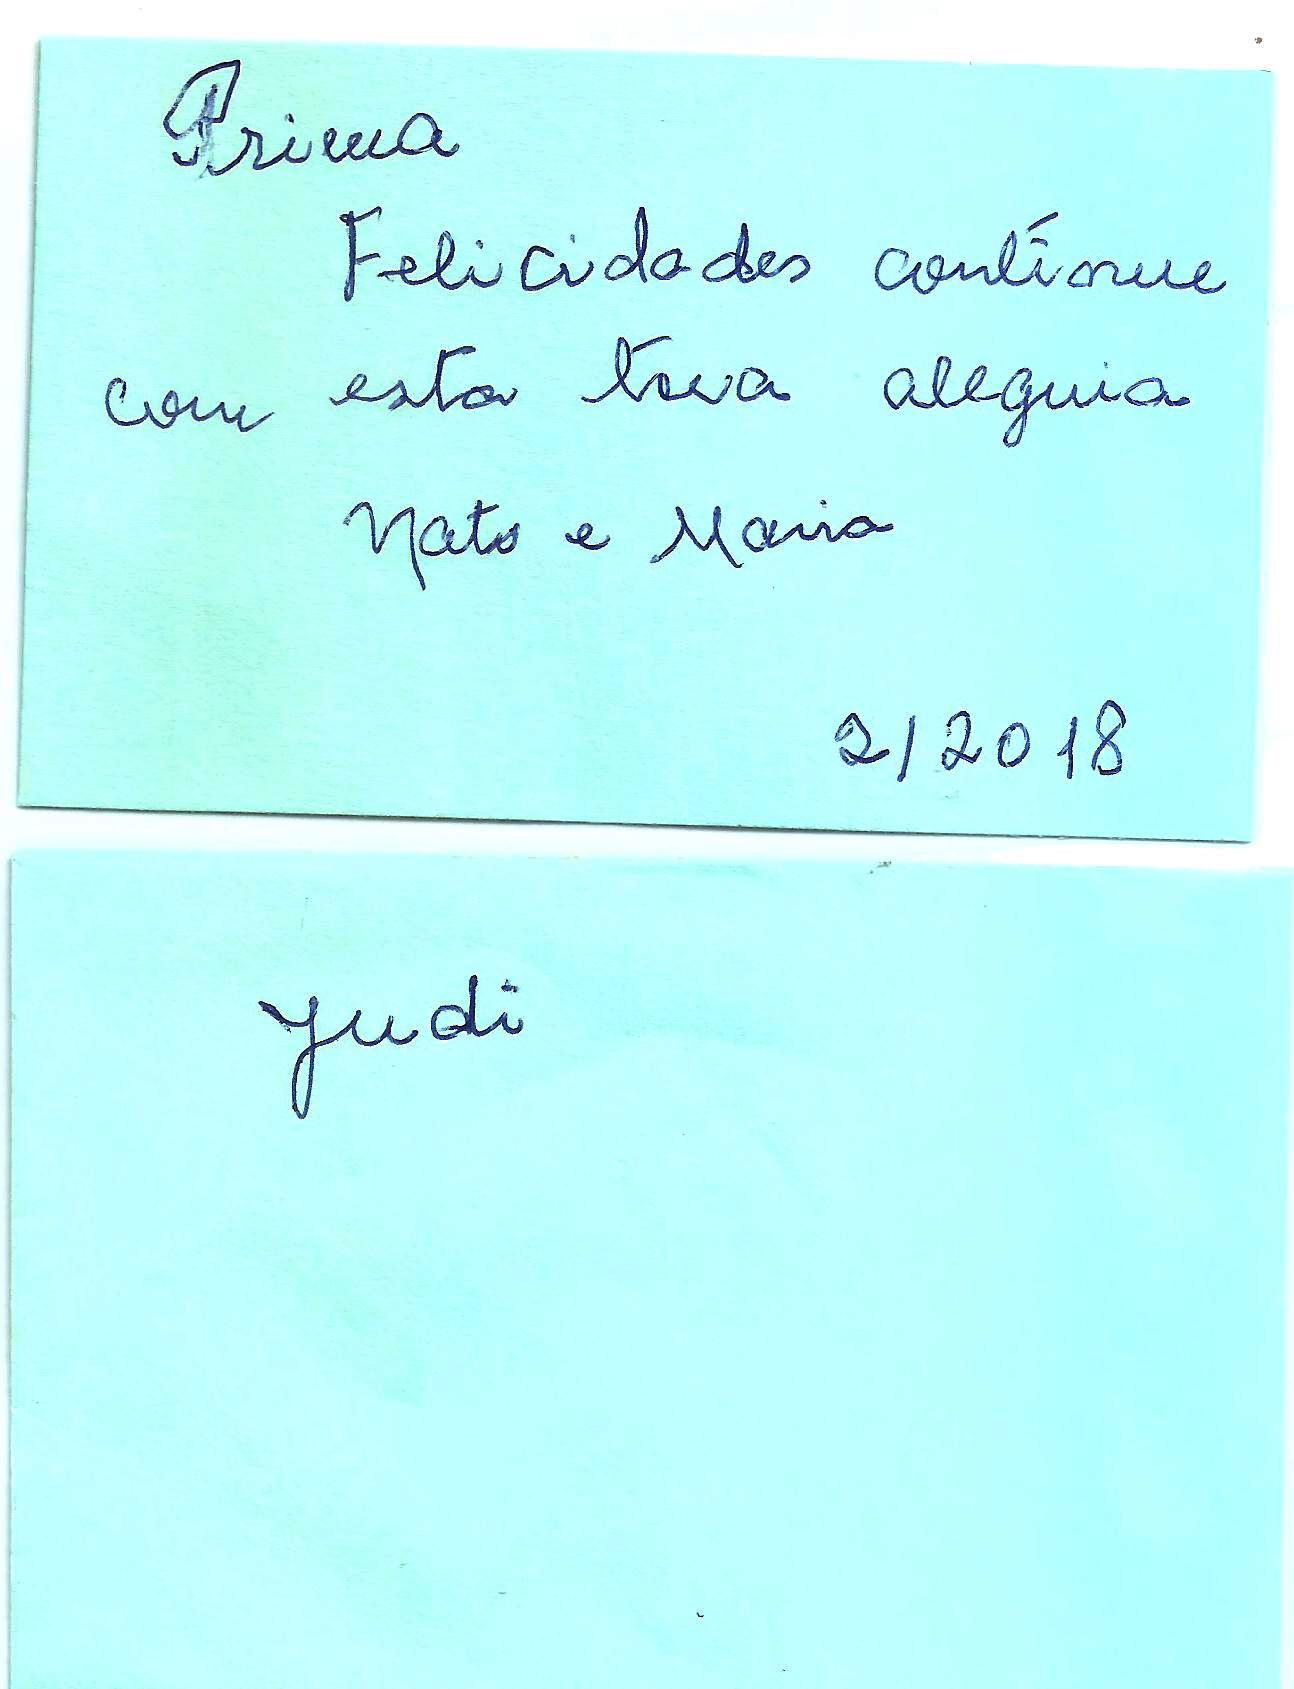 Prima
Felicidades continue
com esta tua alegria
Nato e Maria
2/2018
Yudi